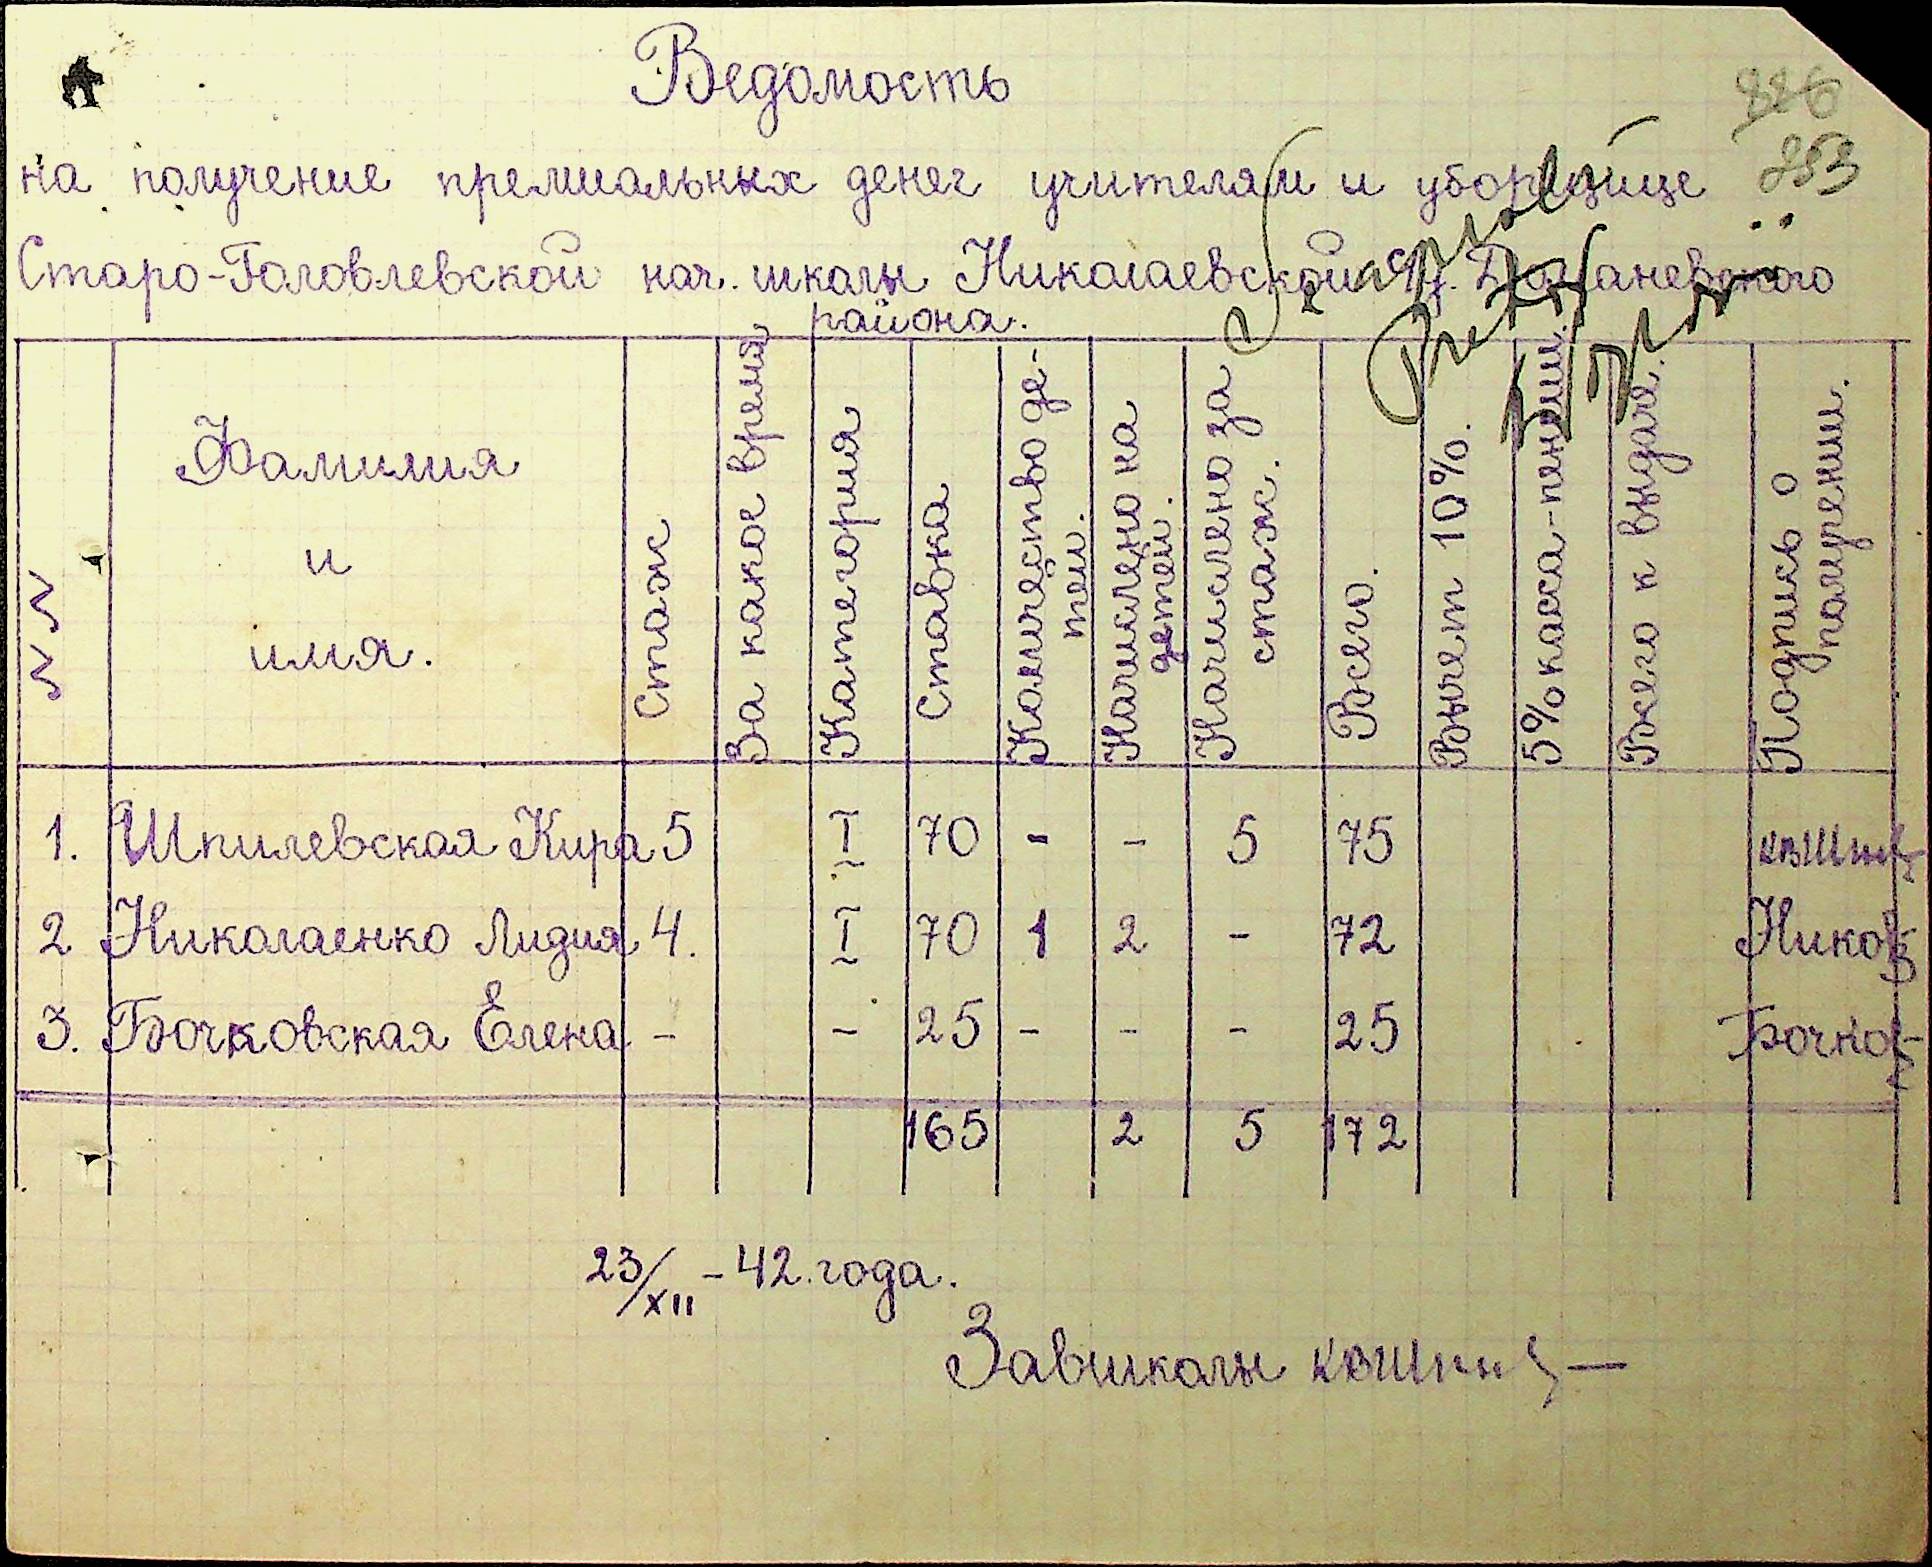 Ведомость
826
853
на получение премиальных денег учителям и уборщице
Старо-Головлевской нач. школы Николаевской с/у. Доманевского
района.
№ №
Фамилия
и
имя.
Стаж
За какое время
Категория
Ставка
Количество де-
тей.
Начислено на
детей.
Начислено за
стаж.
Всего.
Вычет 10%.
5% касса-пенсии.
Всего к выдаче.
Подпись о
получении.
1. Шпилевская Кира 5 I 70 - - 5 75 квШпи
2 Николаенко Лидия 4. I 70 1 2 - 72 Нико
3. Бочковская Елена - - 25 - - - 25 Бочко
165 2 5 172
23/XII - 42 года.
Завшколы квШпи